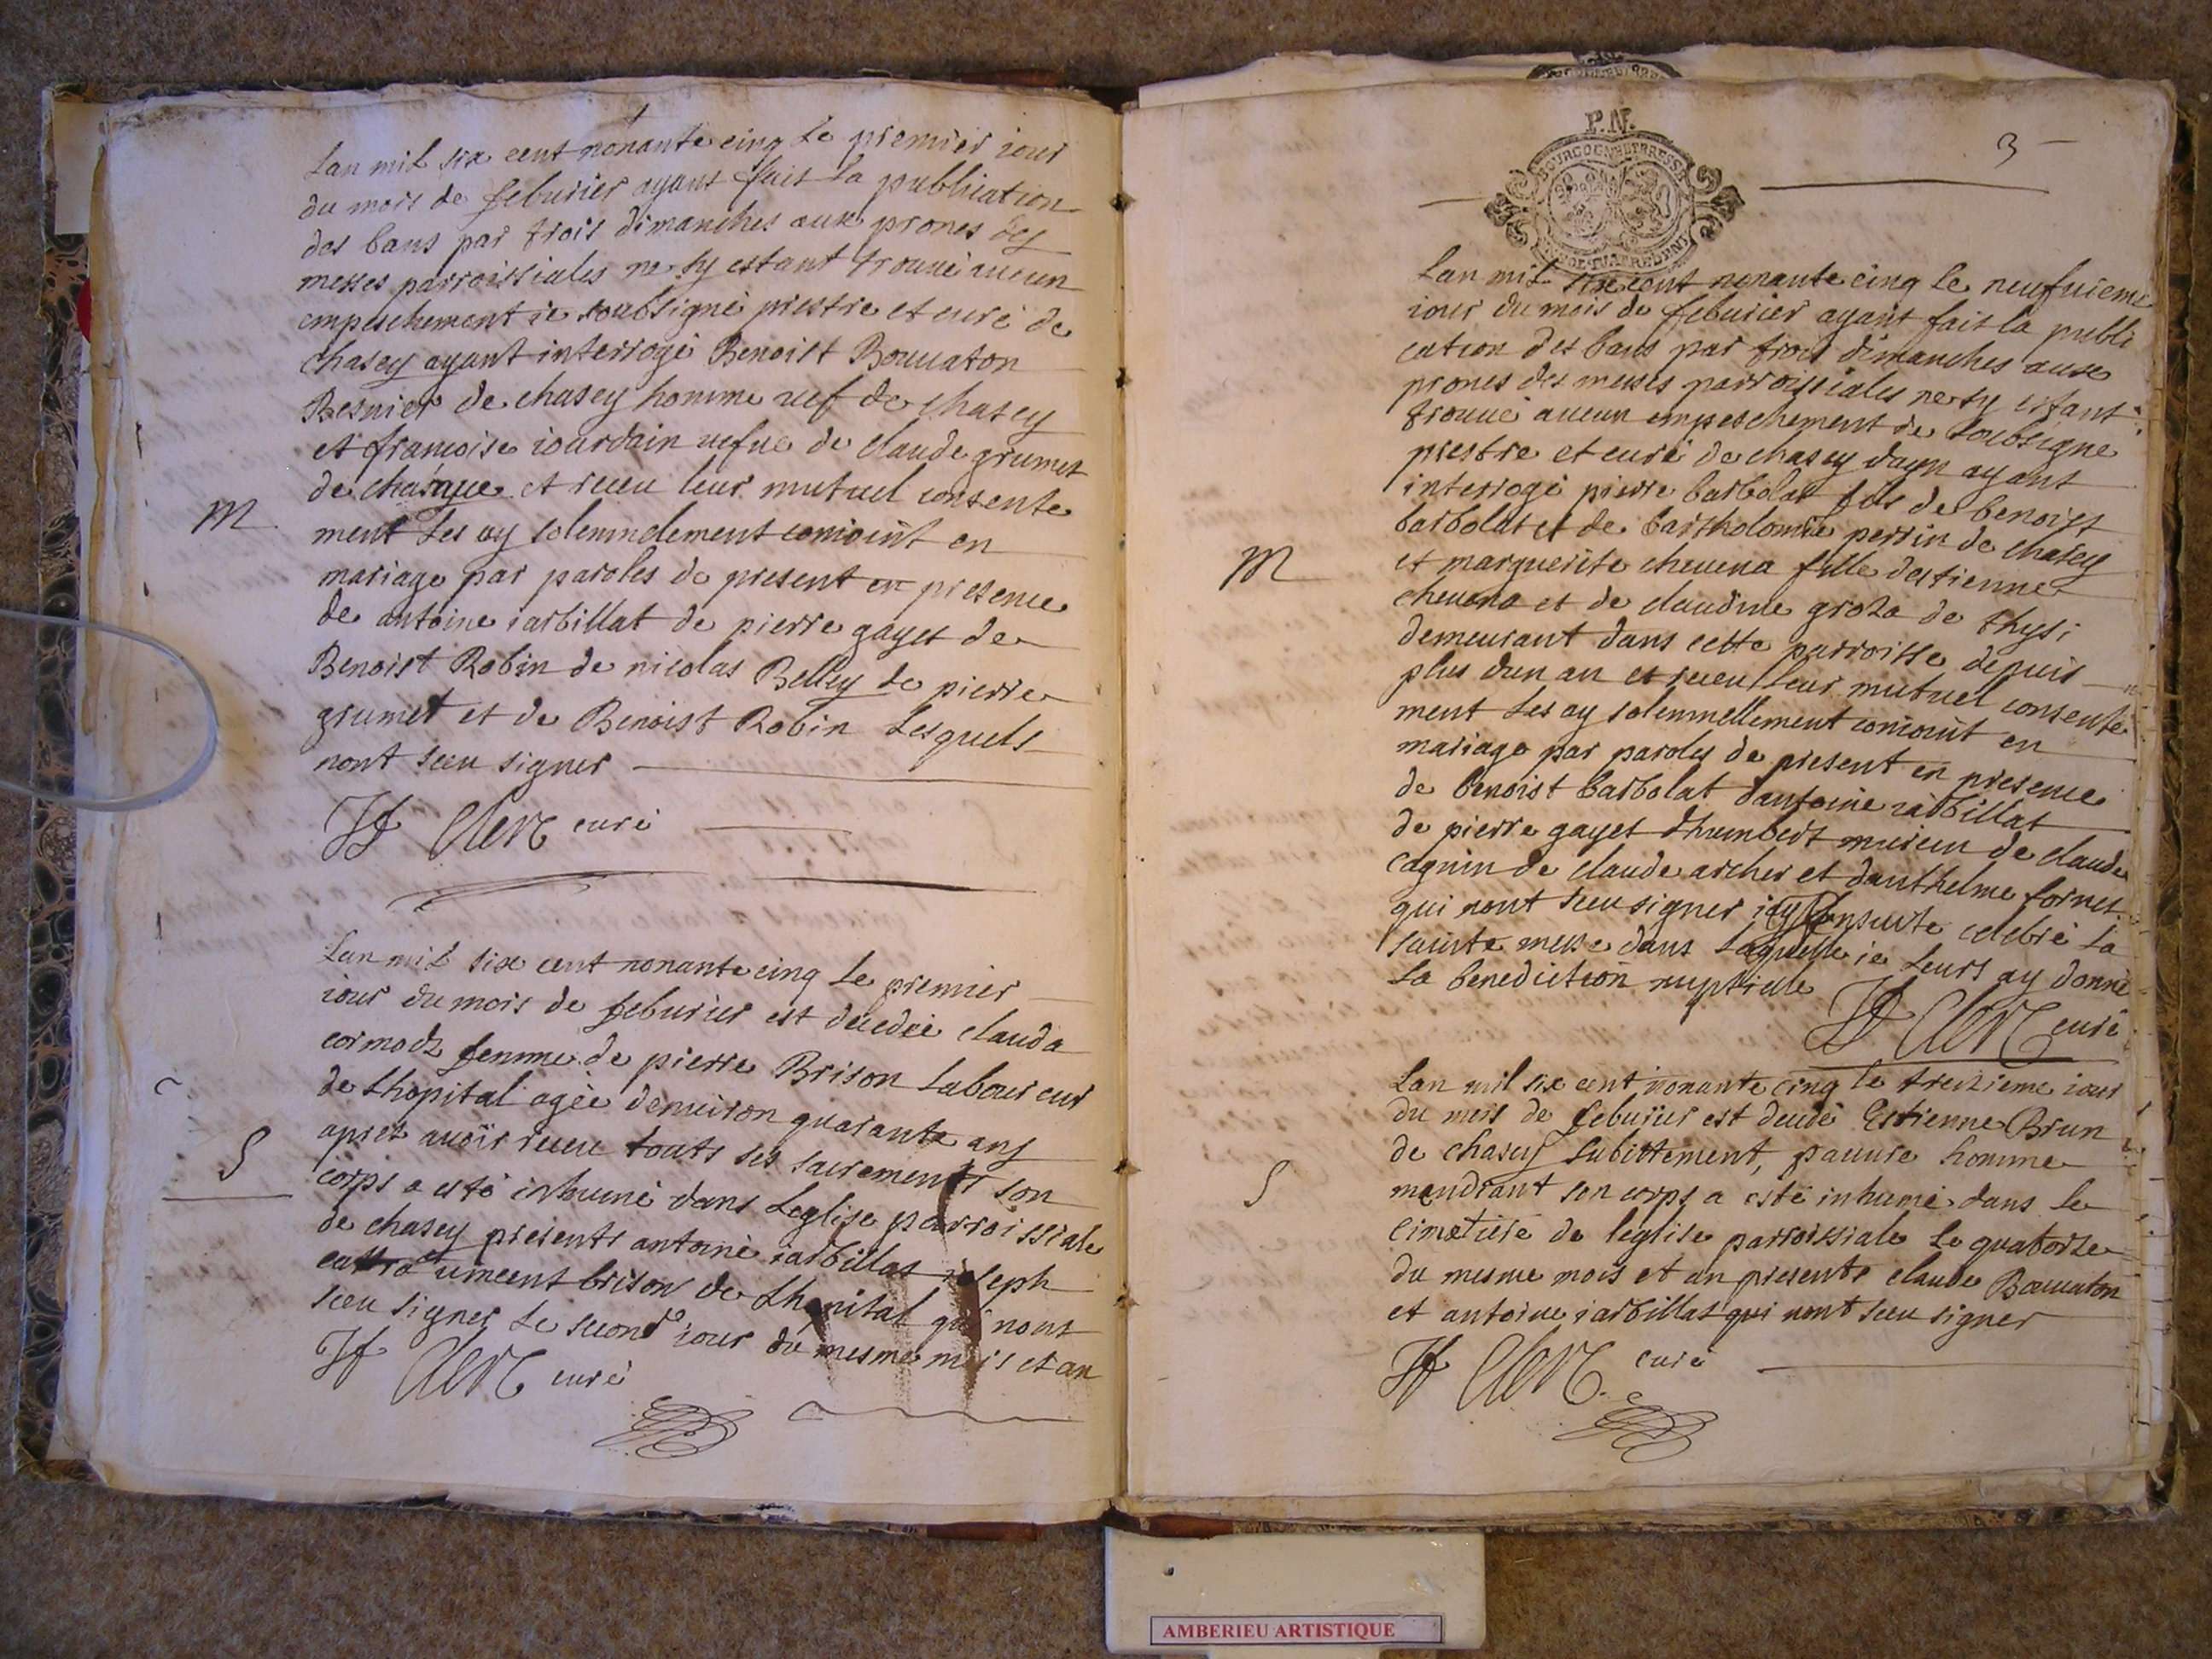 Lan mil six cent nonante cinq Le premier iour
du mois de feburier ayant fait la publication
des bans par trois dimanches aux prones des
messes parroissiales ne sy estant trouué aucun
empeschement ie soubsigné prestre et curé de
chasey ayant interrogé Benoist Bouuaton
Besnier de chasey homme uef de chasey
et francoise iourdain uefue de claude grumet
de et receu leur mutuel consente
M
ment Les ay solemnelement conioint en
mariage par paroles de present en presence
de antoine iarbillat de pierre gayet de
Benoist Robin de nicolas Belley de pierre
grumet et de Benoist Robin Lesquels
nont sceu signer
Clerc curé
Lan mil six cent nonante cinq Le premier
iour du mois de feburier est decedée clauda
cormoz femme de pierre Brison Laboureur
de Lhopital agée denuiron quarante ans
apres auoir receu touts ses sacrements son
S
corps a esté inhumé dans Leglise parroissiale
de chasey presents antoine iarbillat ioseph
et uincent brison de Lhopital qui nont
sceu signer Le second iour du mesme mois et an
Clerc curé
P.N.
BOURGOGNE ET BRESSE
3
Lan mil six cent nonante cinq le neufuieme
iour du mois de feburier ayant fait la publi
cation des bans par trois dimanches aux
prones des messes parroissiales ne sy estant
trouué aucun empeschement ie soubsigné
prestre et curé de chasey dayn ayant
interrogé pierre barbolat fils de benoist
barbolat et de bartholomie perrin de chasey
M
et marguerite cheuena fille destienne
cheuena et de claudine groza de thysi
demeurant dans cette parroisse depuis
plus dun an et receu leur mutuel consente
ment Les ay solemnellement conioint en
mariage par paroles de present en presence
de benoist barbolat dantoine iarbillat
de pierre gayet dhumbert de claude
cagnin de claude archer et danthelme fornet
qui nont sceu signer iay ensuite celebré La
sainte messe dans Laquelle ie Leurs ay donné
La benediction nuptiale
Clerc curé
Lan mil six cent nonante cinq le treizieme iour
du mois de feburier est decedé Estienne Brun
de chasey subittement, pauure homme
S
mendiant son corps a esté inhumé dans le
cimetiere de leglise parroissiale Le quatorze
du mesme mois et an presents claude Bouuaton
et antoine iarbillat qui nont sceu signer
Clerc curé
AMBERIEU ARTISTIQUE